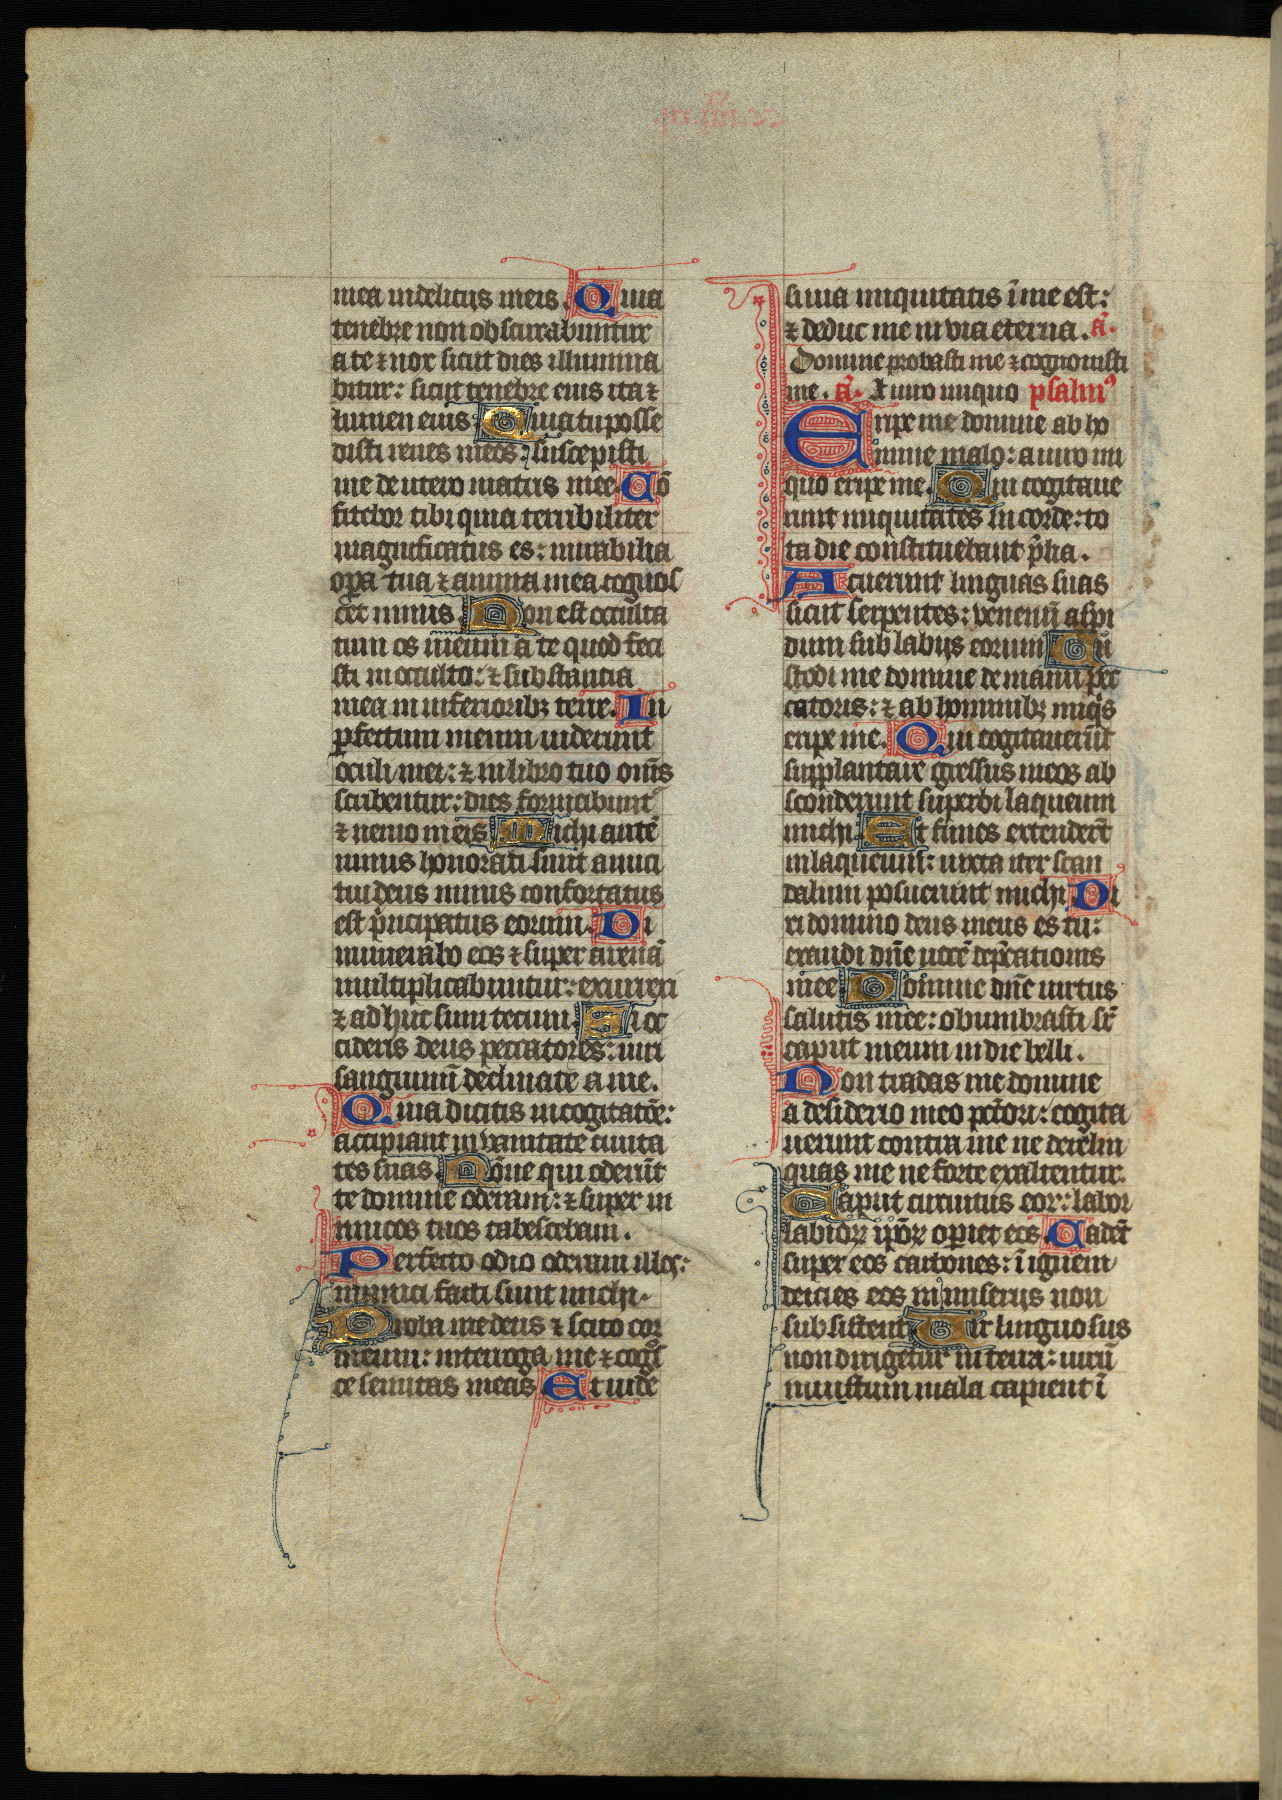 mea in delitiis meis. Quia
tenebre non obscurabuntur
a te ⁊ nox sicut dies illumina
bitur: sicut tenebre eius ita ⁊
lumen eius Quia tu posse
disti renes meos: suscepisti
me de utero matris mee. Cō
fitebor tibi quia terribiliter
magnificatus es: mirabilia
opa tua ⁊ anima mea cognos
cet nimis Non est occulta
tum os meum a te quod feci
sti in occulto: ⁊ substancia
mea in inferioribꝫ terre. In
ꝑfectum meum uiderunt
oculi mei: ⁊ in libro tuo om̄s
scribentur: dies formabunt᷑
⁊ nemo in eis Michi autē
nimis honorati sunt amici
tui deus nimis confortatus
est p̄ncipatus eorum. Di
numerabo eos ⁊ super arenā
multiplicabuntur: exurrexi
⁊ ad huc sum tecum Si oc
cideris deus peccatores: uiri
sanguinū declinate a me.
Quia dicitis in cogitatōe:
accipiant in vanitate ciuita
tes suas Nōne qui oderūt
te domine oderam: ⁊ super in
imicos tuos tabescebam.
Perfecto odio oderam illos:
inimici facti sunt michi.
Proba me deus ⁊ scito cor
meum: interroga me ⁊ cogs̄
ce semitas meas Et uide
si uia iniquitatis ī me est:
⁊ deduc me in via eterna. ā.
Domine probasti me ⁊ cognouisti
me. ā. A uiro iniquo psalmꝰ
Eripe me domine ab ho
mine malo: a uiro ini
quo eripe me. Qui cogitaue
runt iniquitates in corde: to
ta die constituebant p̄lia.
Acuerunt linguas suas
sicut serpentes: venenū aspi
dum sub labiis eorum Cu
stodi me domine de manu pec
catoris: ⁊ ab hominibꝫ iniqs̄
eripe me. Qui cogitauerūt
supplantare gressus meos ab
sconderunt superbi laqueum
michi Et funes extenderūt
in laqueum: iuxta iter scan
dalum posuerunt michi Di
xi domino deus meus es tu:
exaudi dn̄e uocē dep̄cationis
mee Domine dn̄e uirtus
salutis mee: obumbrasti sr̄
caput meum in die belli.
Non tradas me domine
a desiderio meo pctōri: cogita
uerunt contra me ne derelin
quas me ne forte exaltentur.
Caput circuitus eorꝝ: labor
labiorꝝ ipōrꝝ operiet eos Cadēt
super eos carbones: ī ignem
deicies eos in miseriis non
subsistent Uir linguosus
non dirigetur in terra: uirū
iniustum mala capient ī